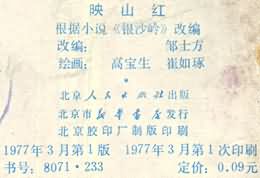 映山红
根据小说《银沙岭》改编
改编：邹士方
绘画：高宝生 崔如琢
北京人民出版社出版
北京市新华书店发行
北京胶印厂制版印刷
1977年3月第1版 1977年3月第1次印刷
书号：8071·233 定价：0.09元